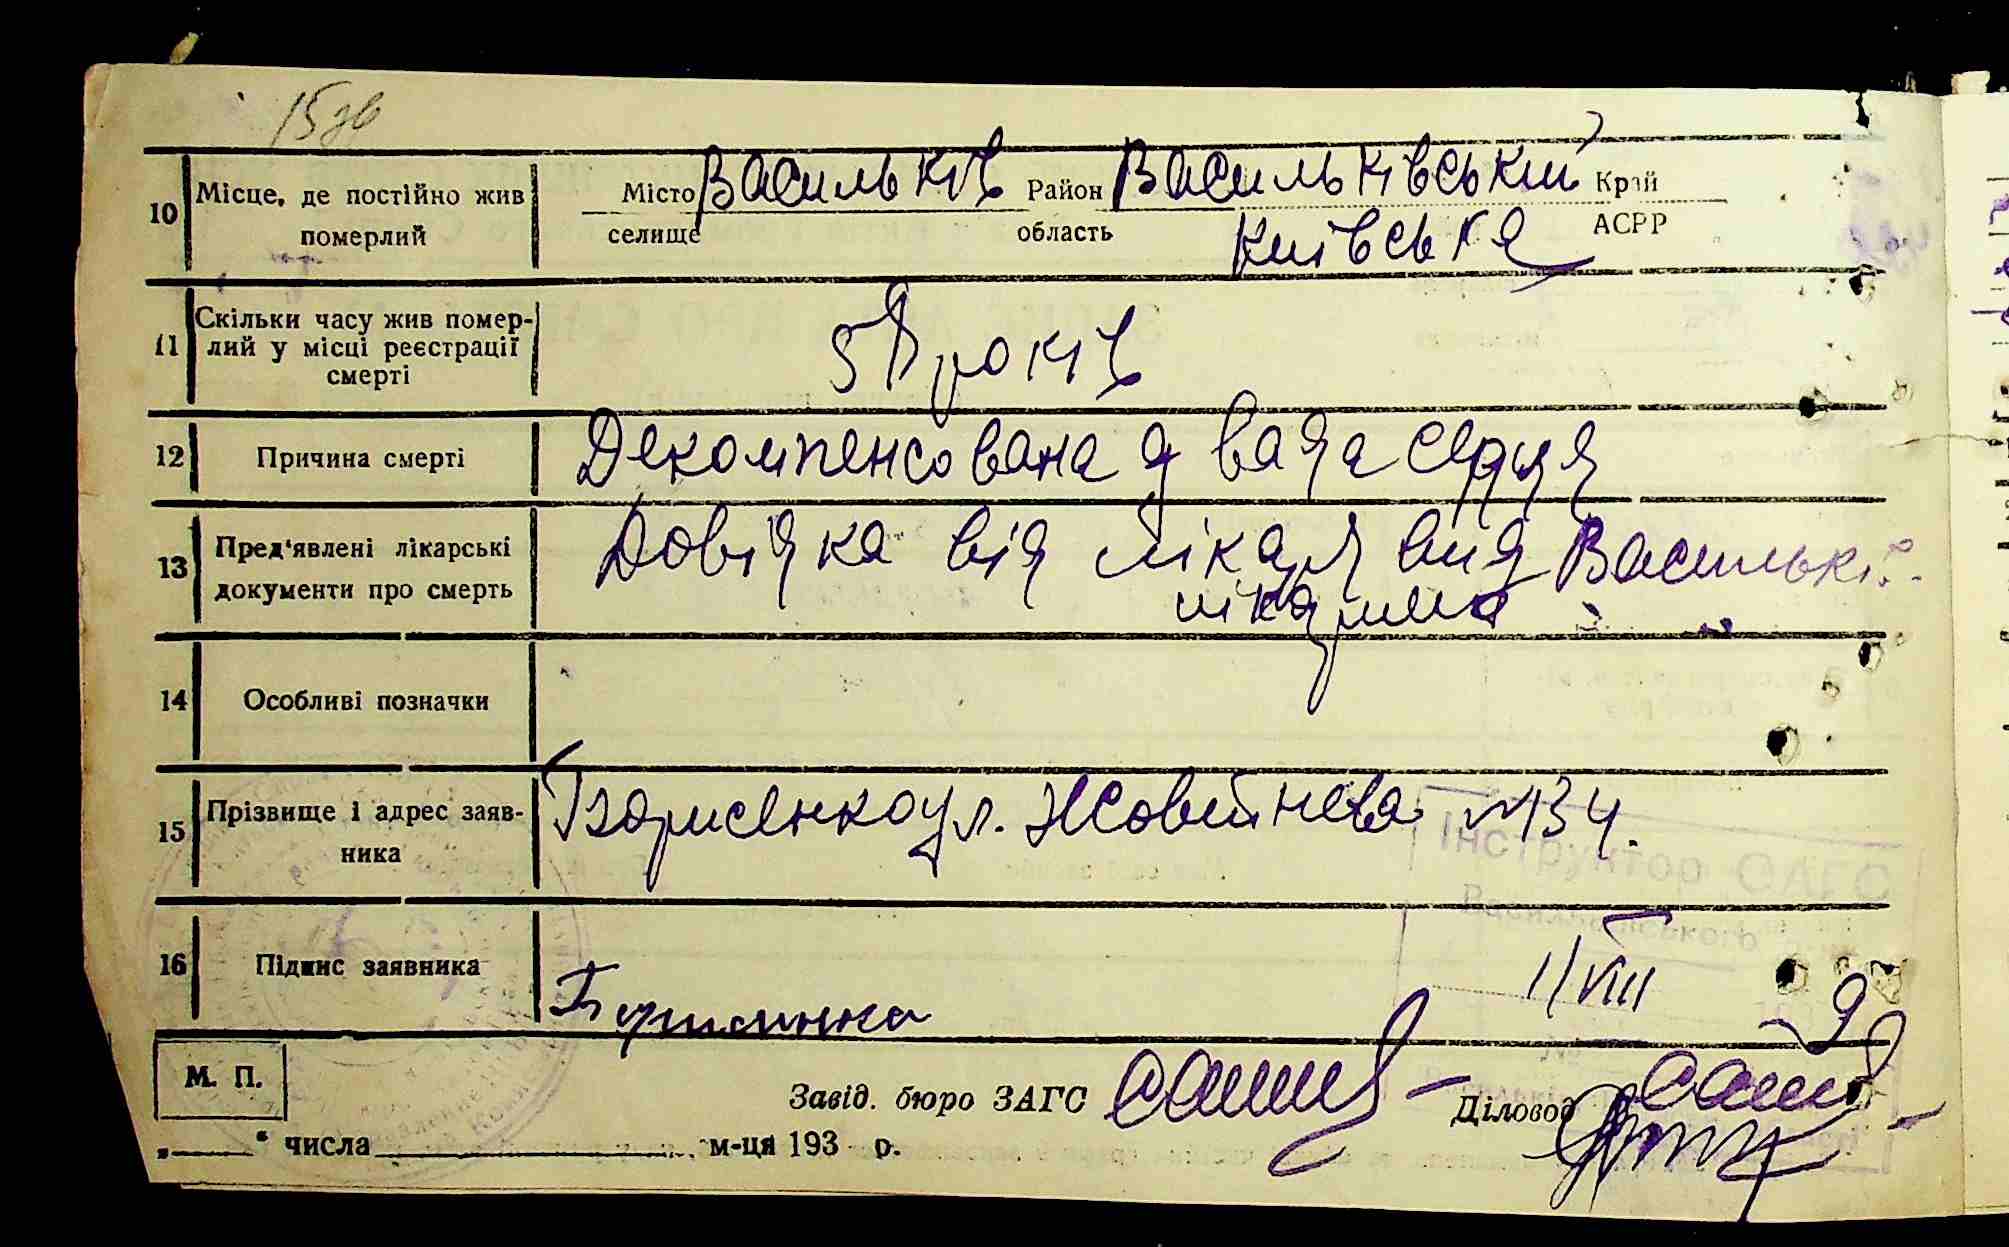 15 зв
10 Місце, де постійно жив померлий
Місто Васильків Район Васильківський Край
селище область Київська АСРР
11 Скільки часу жив помер-
лий у місці реєстрації
смерті
років
12 Причина смерті Декомпенсована вада серця
13 Пред'явлені лікарські
документи про смерть
Довідка від лікаря вид Васильків.
14 Особливі позначки
15 Прізвище і адрес заяв-
ника
Борисенко ул. Жовтнева №134.
Інструктор ОАГС
Васильківського
16 Підпис заявника
11/VIII
М. П.
Завід. бюро ЗАГС
Діловод
„ “ числа м-ця 193 р.